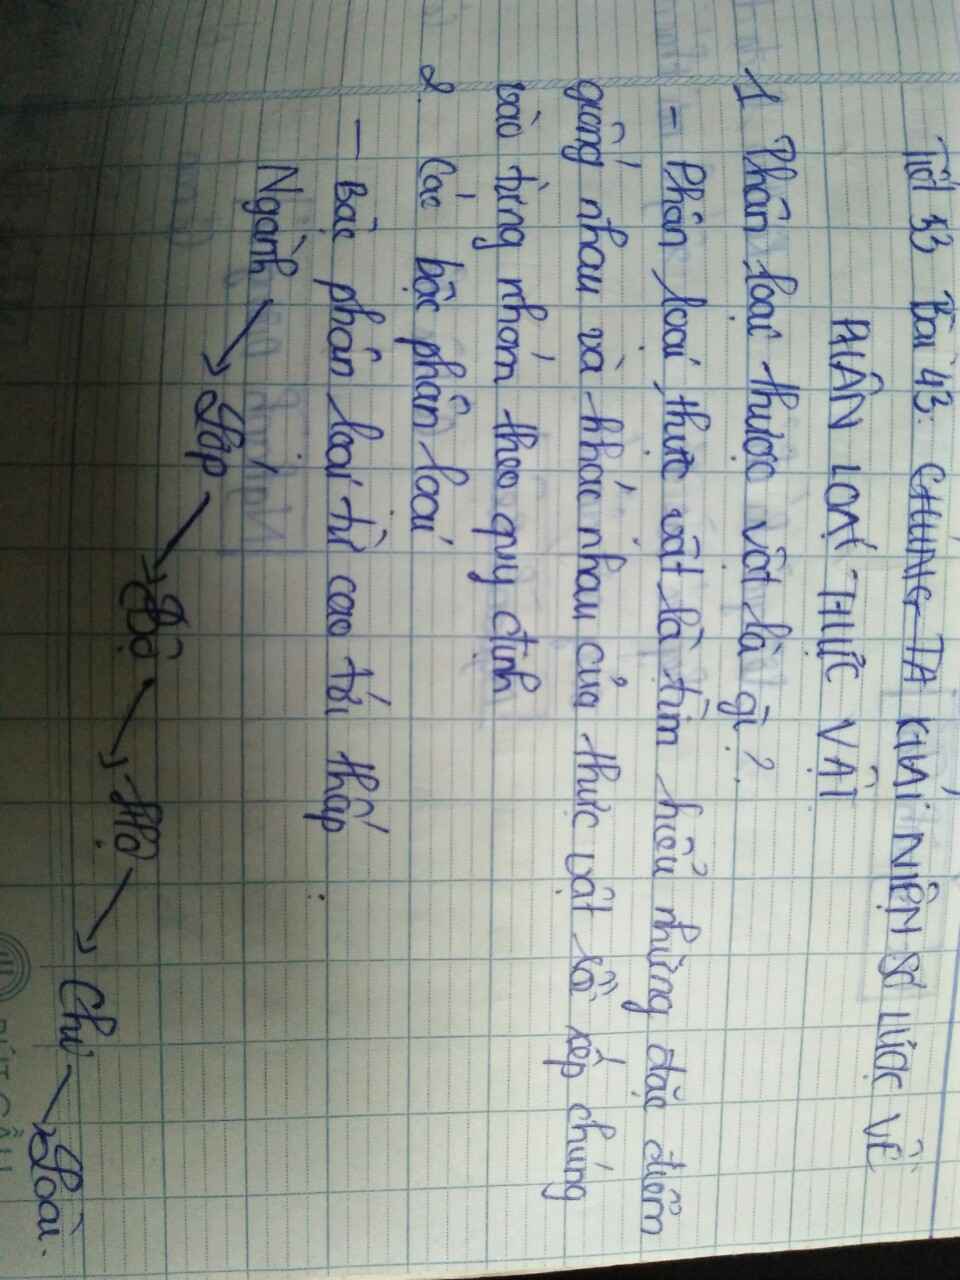 Tiết 53 Bài 43: CHÚNG TA KHÁI NIỆM SƠ LƯỢC VỀ
PHÂN LOẠI THỰC VẬT
1 Phân loại thược vật là gì?
- Phân loại thực vật là tìm hiểu những đặc điểm
giống nhau và khác nhau của thực vật rồi xếp chúng
vào từng nhóm theo quy định
2. Các bậc phân loại
- Bậc phân loại từ cao tới thấp
Ngành → Lớp → Bộ → Họ → Chi → Loài.